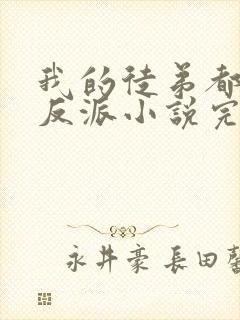 我的徒弟都
反派小說完
永井豪 長田馨